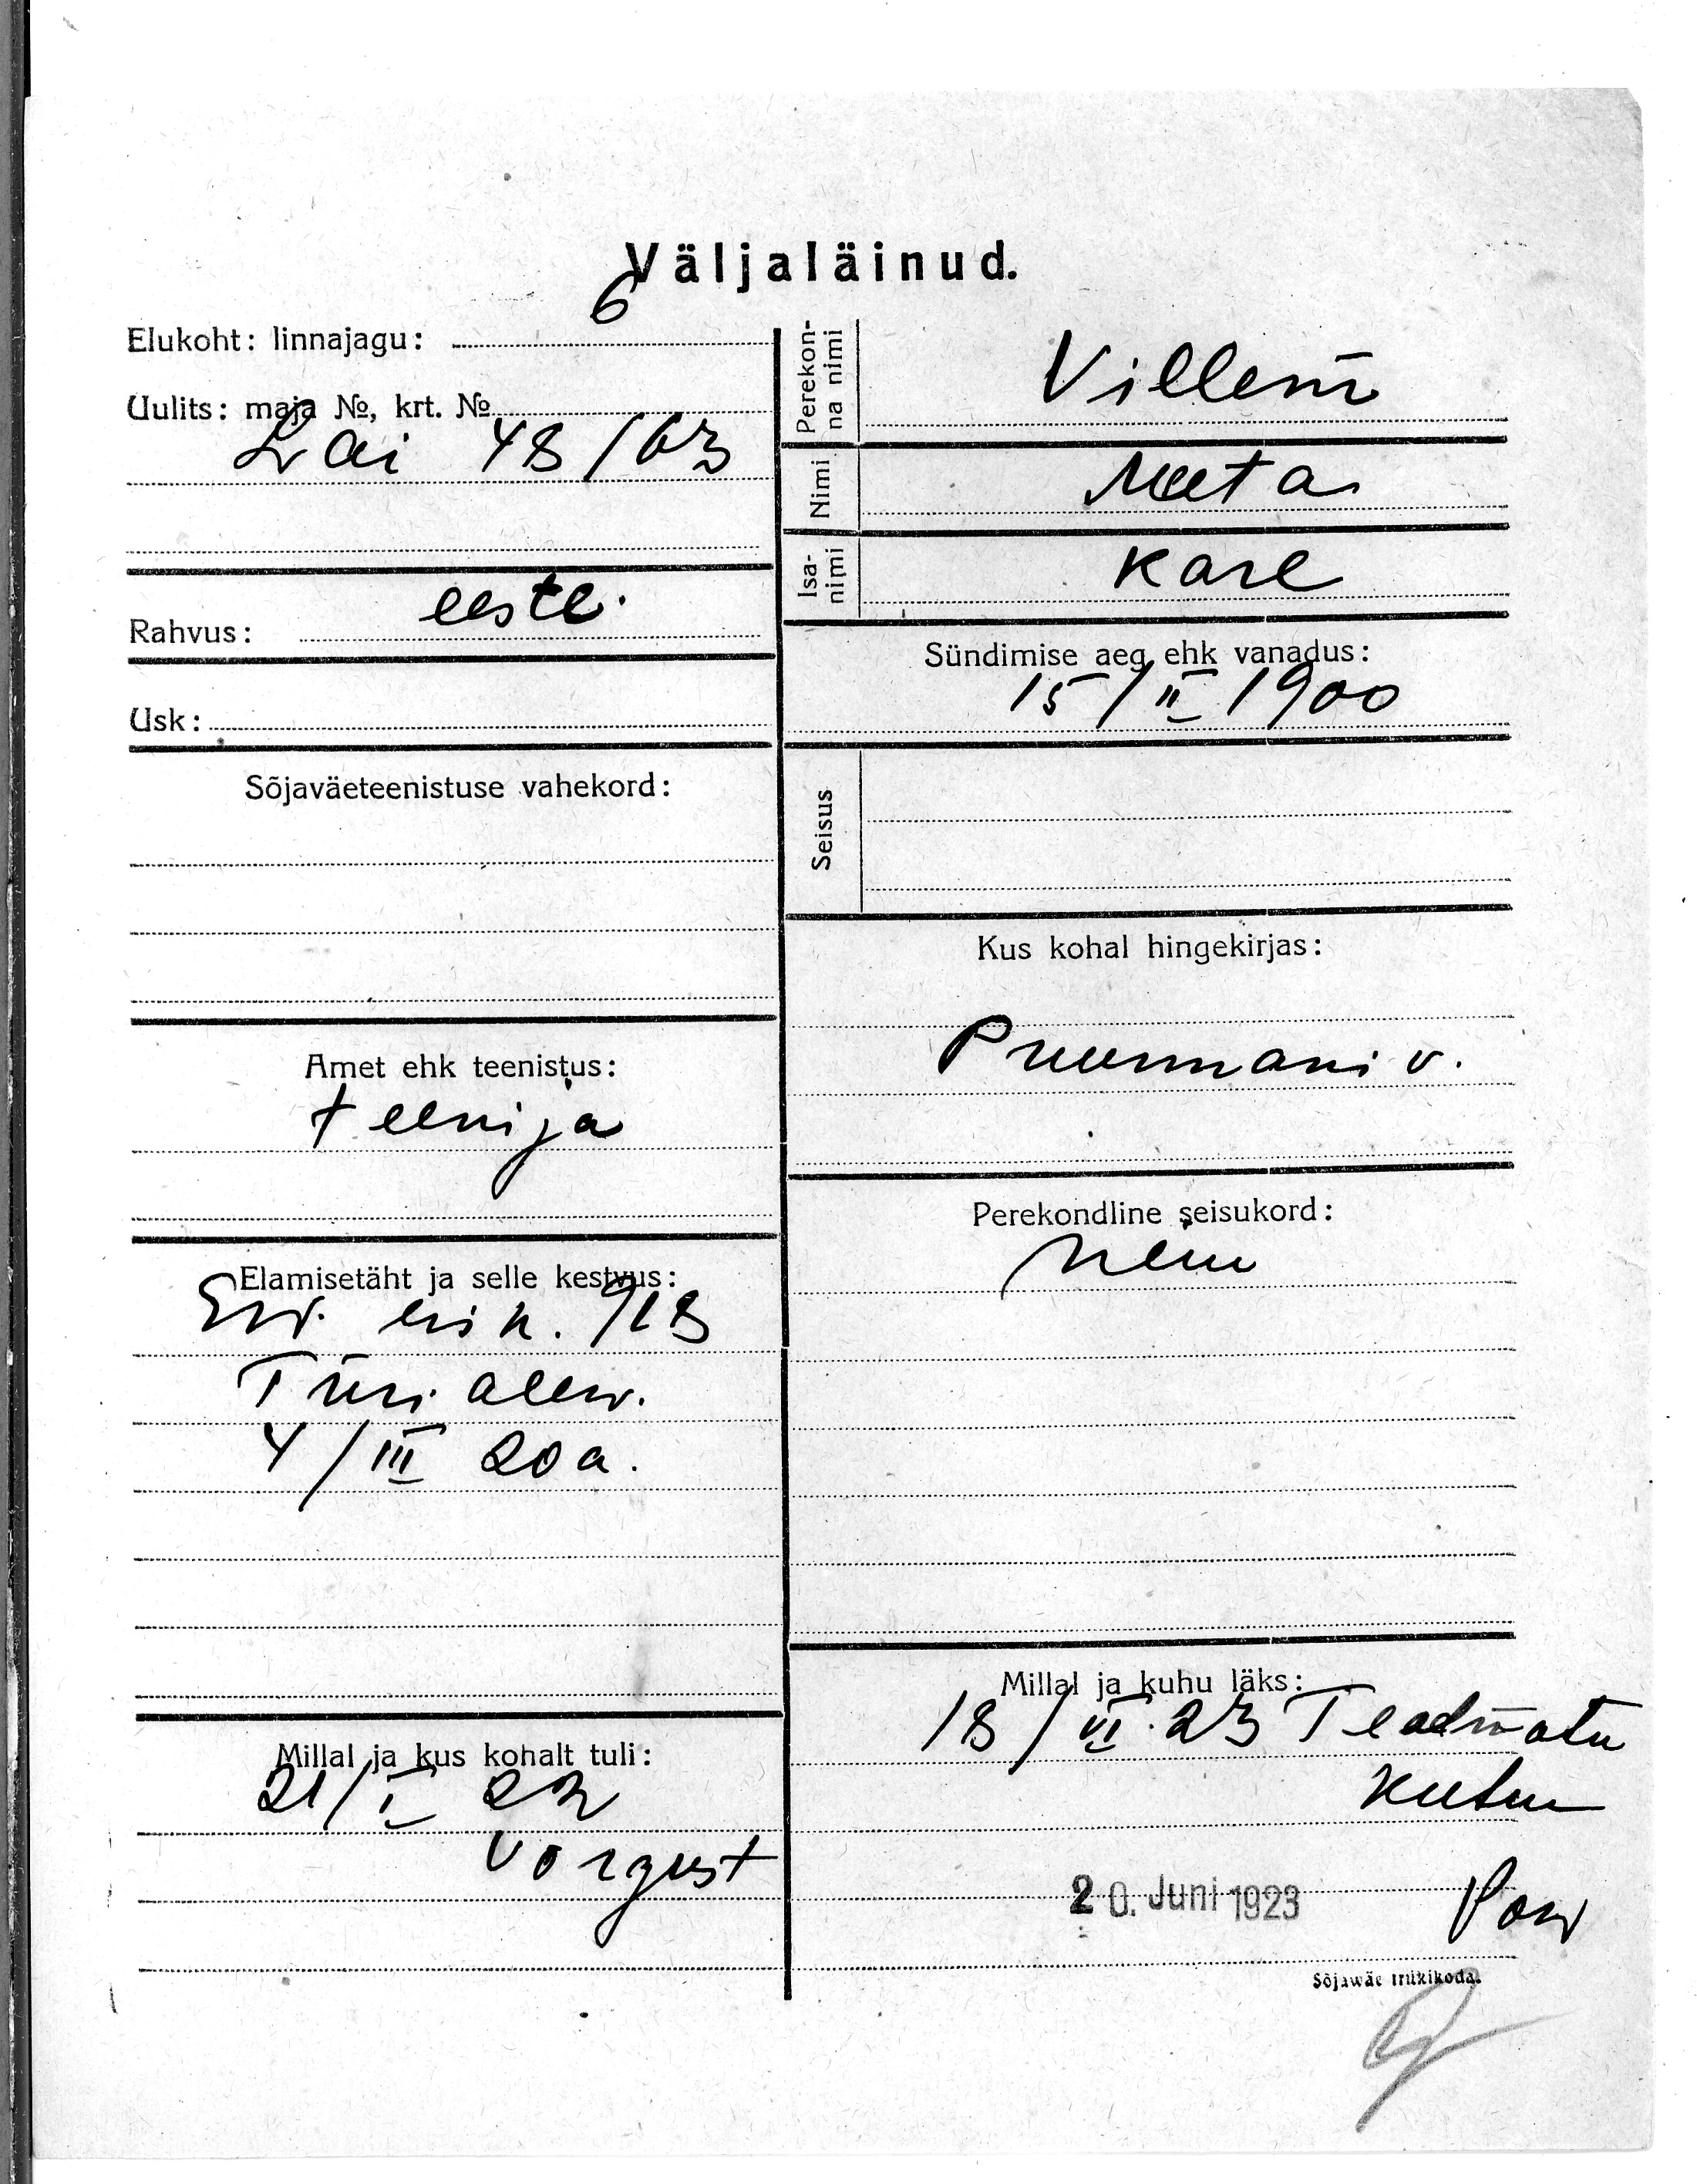 Väljaläinud.
Elukoht: linnajagu: 6
Uulits: maja №, krt. №
Lai 48/63
Rahvus: eestl.
Usk:
Sõjaväeteenistuse vahekord:
Amet ehk teenistus:
teenija
Elamisetäht ja selle kestvus:
918
Türi alew.
4/III 20 a.
Millal ja kus kohalt tuli:
21/I 22
Võrgust
Perekonna nimi
Villem
Nimi
Meeta
Isanimi
Karl
Sündimise aeg ehk vanadus:
15/II 1900
Seisus
Kus kohal hingekirjas:
Puurmani v.
Perekondline seisukord:
neiu
Millal ja kuhu läks:
18/VI.23 Teadmata
kuhu
20. Juni 1923
Sõjawäe trükikoda.